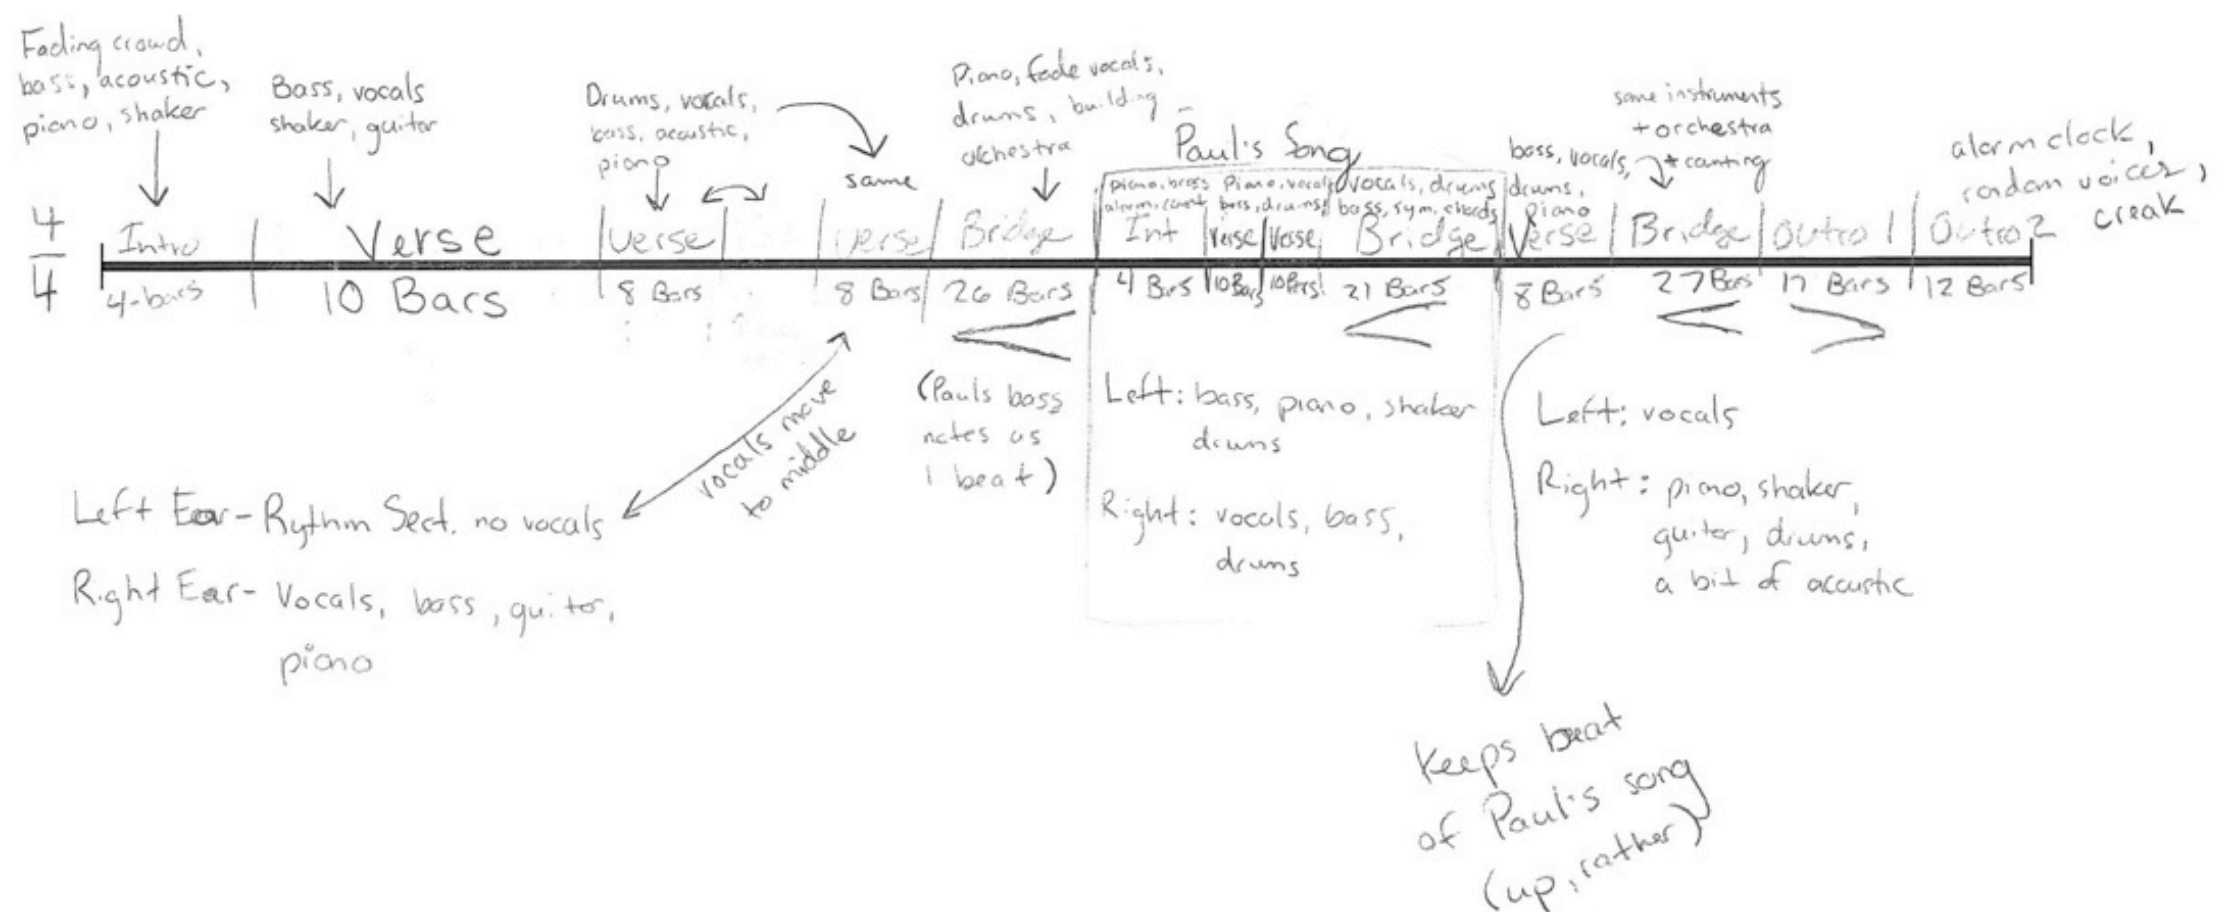 Fading crowd,
bass, acoustic,
piano, shaker
Bass, vocals
shaker, guitar
Drums, vocals,
bass, acoustic,
piano
same
Piano, fade vocals,
drums, building
orchestra
Paul's Song
piano, brass
alarm, count
Piano, vocals
bass, drums
vocals, drums
bass, sym, chords
bass, vocals,
drums,
piano
same instruments
+ orchestra
+ counting
alarm clock,
random voices,
creak
4/4
Intro
Verse
Verse
Verse
Bridge
Int
Verse
Verse
Bridge
Verse
Bridge
Outro 1
Outro 2
4-bars
10 Bars
8 Bars
8 Bars
26 Bars
4 Bars
10 Bars
10 Bars
21 Bars
8 Bars
27 Bars
17 Bars
12 Bars
vocals move
to middle
(Pauls bass
notes as
1 beat)
Left: bass, piano, shaker
drums
Right: vocals, bass,
drums
Left: vocals
Right: piano, shaker,
guitar, drums,
a bit of accustic
Left Ear- Rythm Sect. no vocals
Right Ear- Vocals, bass, guitar,
piano
Keeps beat
of Paul's song
(up, rather)